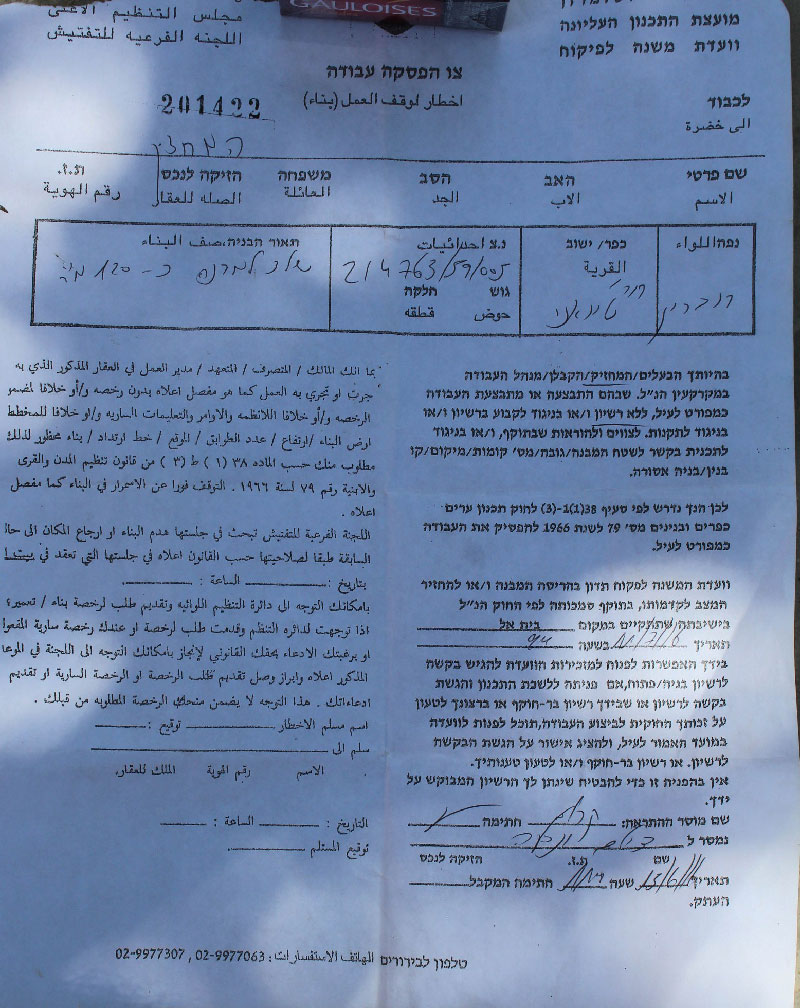 GAULOISES
מועצת התכנון העליונה
وועדת משנה לפיקוח
مجلس التنظيم الاعلى
اللجنه الفرعيه للتفتيش
צו הפסקה עבודה
اخطار لوقف العمل (بناء)
201422
לכבוד
الى حضرة
המחזיק
שם פרטי האב הסב משפחה הזיקה לנכס ת.ז.
الاسم الاب الجد العائلة الصله للعقار رقم الهوية
נפה اللواء כפר/ ישוב נ.צ احداثيات תאור הבניה، صف البناء
القرية
214763/59/005
גוש חלקה
حوض قطعه
חברון
בהיותך הבעלים/המחזיק/הקבלן/מנהל העבודה
במקרקעין הנ"ל. שבהם התבצעה או מתבצעת העבודה
כמפורט לעיל, ללא רשיון ו/או בניגוד לקבוע ברשיון ו/או
בניגוד לתקנות. לצווים ולהוראות שבתוקף, ו/או בניגוד
לתכנית בקשר לשטח המבנה/גובה/מס' קומות/מיקום/קו
בנין/בניה אסורה.
לכן הנך נדרש לפי סעיף 38(1)-1(3) לחוק תכנון ערים
כפרים ובנינים מס' 79 לשנת 1966 להפסיק את העבודה
כמפורט לעיל.
וועדת המשנה לפקוח תדון בהריסת המבנה ו/או להחזיר
המצב לקדמותו, בתוקף סמכותה לפי החוק הנ"ל
בישיבתה שתתקיים במקום בית אל
תאריך בשעה
בידך האפשרות לפנות למזכירות הוועדה להגיש בקשה
לרשיון בניה/פתוח, אם פניתה ללשכת התכנון והגשת
בקשה לרשיון או שבידך רשיון בר-חוקף או ברצונך לטעון
על זכותך החוקית לביצוע העבודה, תוכל לפנות לוועדה
במועד האמור לעיל, ולהציג אישור על הגשת הבקשה
לרשיון. או רשיון בר-חוקף ו/או לטעון טענותיך.
אין בהפניה זו כדי להבטיח שינתן לך הרשיון המבוקש על
ידך.
שם מוסר ההתראה: חתימה
נמסר ל
שם ת.ז. הזיקה לנכס
תאריך שעה חתימה המקבל
העתק.
بما انك المالك / المتصرف / المتعهد / مدير العمل في العقار المذكور الذي به
جرت او تجري به العمل كما هو مفصل اعلاه بدون رخصه و/أو خلافا لمضمر
الرخصه و/أو خلافا للانظمه والاوامر والتعليمات الساريه و/او خلافا للمخطط
ارض البناء / ارتفاع / عدد الطوابق / الموقع / خط ارتداد / بناء محظور لذلك
مطلوب منك حسب الماده ٣٨ (١) ط (٣) من قانون تنظيم المدن والقرى
والابنية رقم ٧٩ لسنة ١٩٦٦. التوقف فورا عن الاستمرار في البناء كما مفصل
اعلاه.
اللجنة الفرعية للتفتيش تبحث في جلستها هدم البناء او ارجاع المكان الى حالـ
السابقة طبقا لصلاحيتها حسب القانون اعلاه في جلستها التي تعقد في
بتاريخ : الساعة :
بامكانك التوجه الى دائرة التنظيم اللوائيه وتقديم طلب لرخصة بناء / تعمير؟
اذا توجهت لدائره التنظم وقدمت طلب لرخصة او عندك رخصة سارية المفعوا
او برغبتك الادعاء بحقك القانوني لإنجاز بامكانك التوجه الى اللجنة في الموعا
المذكور اعلاه وابراز وصل تقديم طلب الرخصة او الرخصة السارية او تقديم
ادعاءاتك. هذا التوجه لا يضمن منحك الرخصة المطلوبه من قبلك.
اسم مسلم الاخطار توقيع :
سلم الى
الاسم رقم الهوية الملك للعقار.
التاريخ : الساعة :
توقيع المستلم
טלפון לבירורים الهاتف الاستفسارات : 02-9977063 , 02-9977307